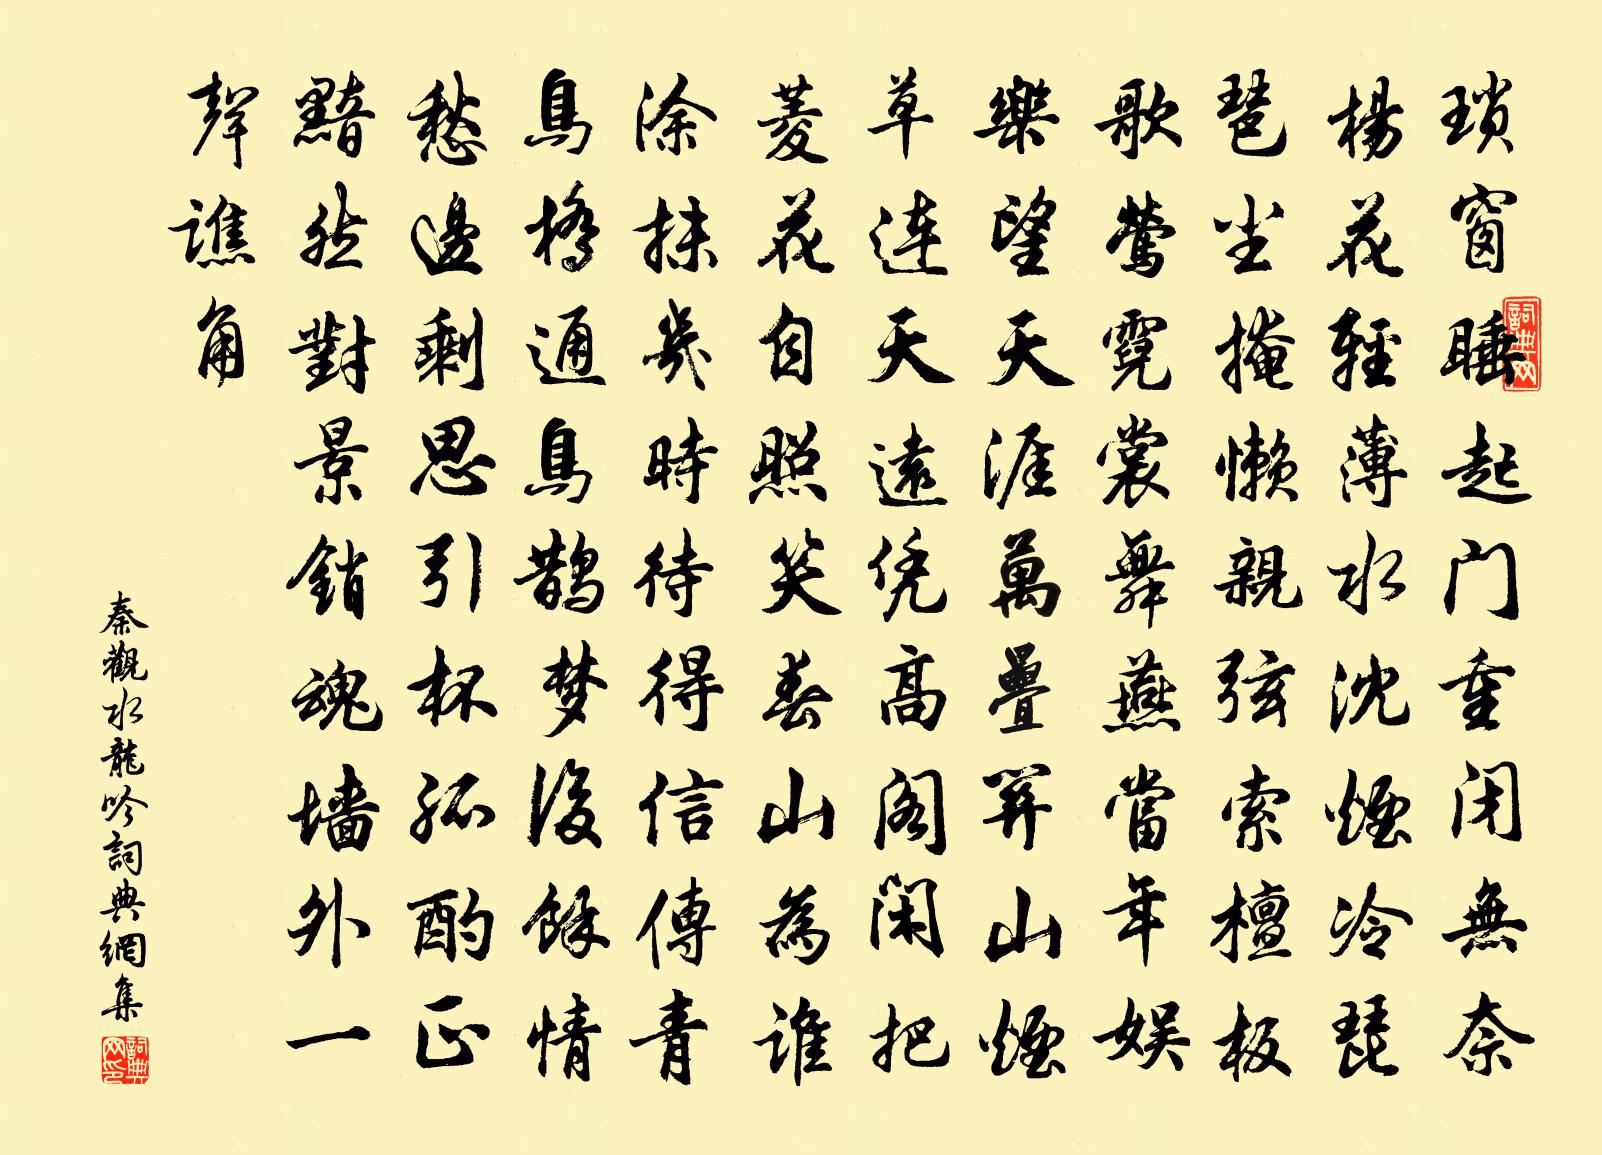 瑣窗睡起门重闭無奈
楊花輕薄水沈煙冷琵
琶尘掩懒親弦索檀板
歌鶯霓裳舞燕當年娛
樂望天涯萬疊關山煙
草連天遠凭高阁闲把
菱花自照笑春山為谁
涂抹幾時待得信傳青
鳥橋通鳥鵲梦後餘情
愁邊剩思引杯孤酌正
黯然對景銷魂墙外一
聲譙角
秦觀水龍吟詞典網集
詞典网
詞典网印